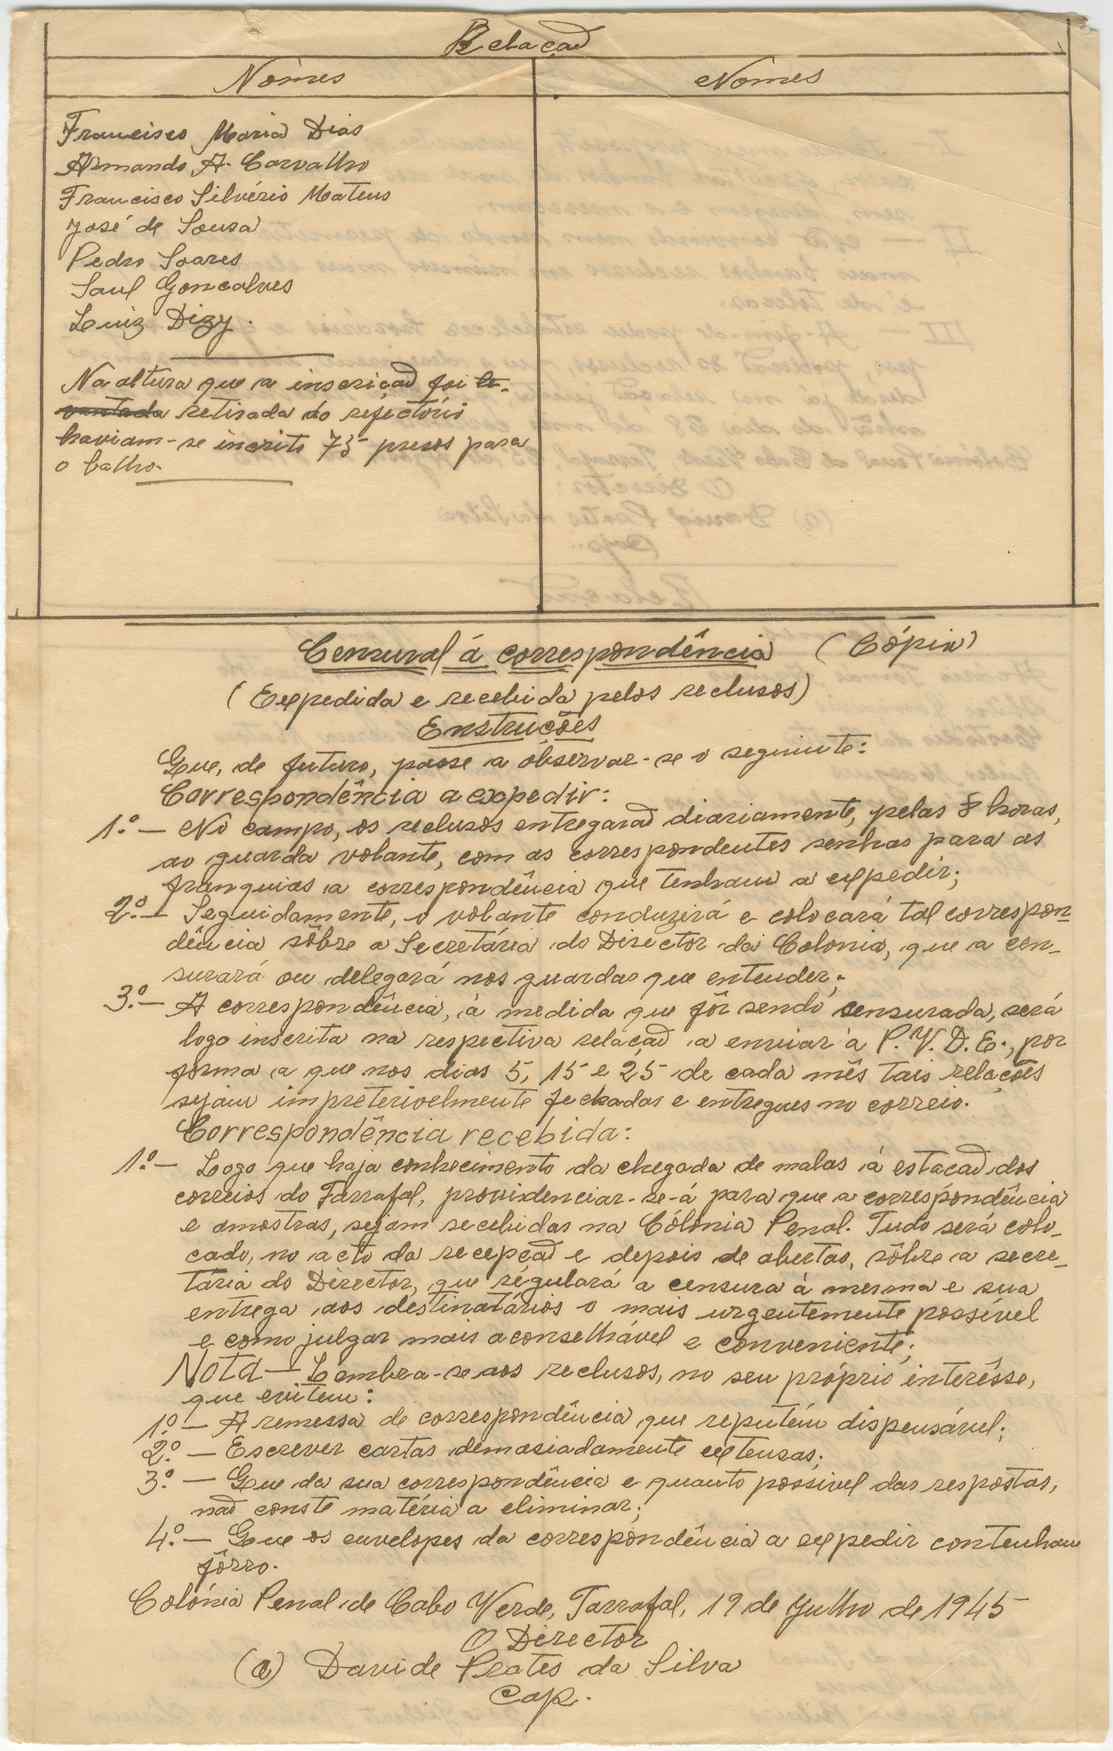 Relação
Nomes
Nomes
Francisco Maria Dias
Armando A. Carvalho
Francisco Silvério Mateus
José de Sousa
Pedro Soares
Saul Gonçalves
Luiz Dizy.
Na altura que a inscriçaõ foi le-
vantada retirada do refectório
haviam-se incrito 73 presos para
o balho.
Censural á correspondência (Cópia)
(Expedida e recebida pelos reclusos)
Enstruções
Que, de futuro, passe a observar-se o seguinte:
Correspondência a expedir:
1.º — No campo, os reclusos entregaraõ diariamente, pelas 8 horas,
ao guarda volante, com as correspondentes senhas para as
franquias a correspondência que tenham a expedir;
2.º — Seguidamente, o volante conduzirá e colocará tal correspon-
dência sôbre a Secretária do Director da Colonia, que a cen-
surará ou delegará nos guardas que entender;
3.º — A correspondência, á medida que fôr sendo censurada, será
logo inscrita na respectiva relaçaõ a enviar à P. V. D. E., por
forma a que nos dias 5, 15 e 25 de cada mês tais relações
sejam impreterivelmente fechadas e entregues no correio.
Correspondência recebida:
1.º — Logo que haja conhecimento da chegada de malas á estaçaõ dos
correios do Tarrafal, providenciar-se-á para que a correspondência
e amostras, sejam recebidas na Cólonia Penal. Tudo será colo-
cado, no acto da recepçaõ e depois de abertas, sôbre a secre-
tária do Director, que regulará a censura à mesma e sua
entrega aos destinatários o mais urgentemente possível
e como julgar mais aconselhável e conveniente;
Nota — Lembra-se aos reclusos, no seu próprio interêsse,
que evitem:
1.º — A remessa de correspondência que reputem dispensável;
2.º — Escrever cartas demasiadamente extensas;
3.º — Que da sua correspondência e quanto possivel das respostas,
naõ conste matéria a eliminar;
4.º — Que os envelopes da correspondência a expedir contenham
fôrro.
Colónia Penal de Cabo Verde, Tarrafal, 19 de Julho de 1945
O Director
(a) David Prates da Silva
Cap.